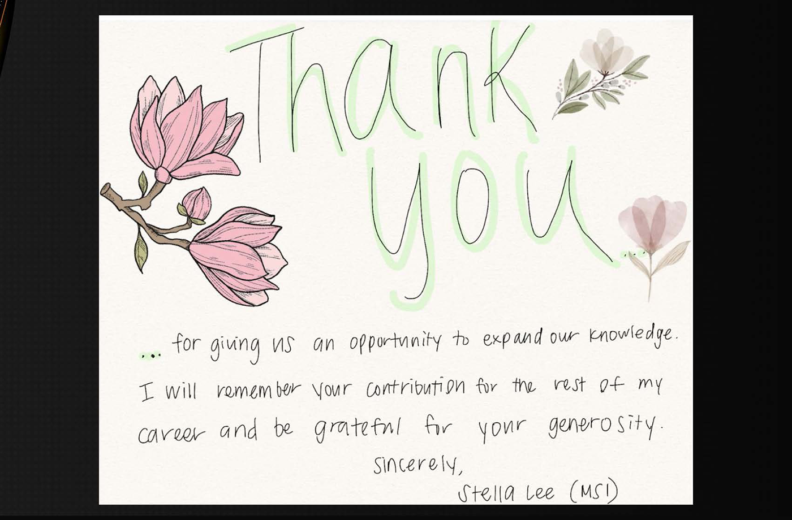 Thank
you...
... for giving us an opportunity to expand our knowledge.
I will remember your contribution for the rest of my
career and be grateful for your generosity.
Sincerely,
Stella Lee (MS1)